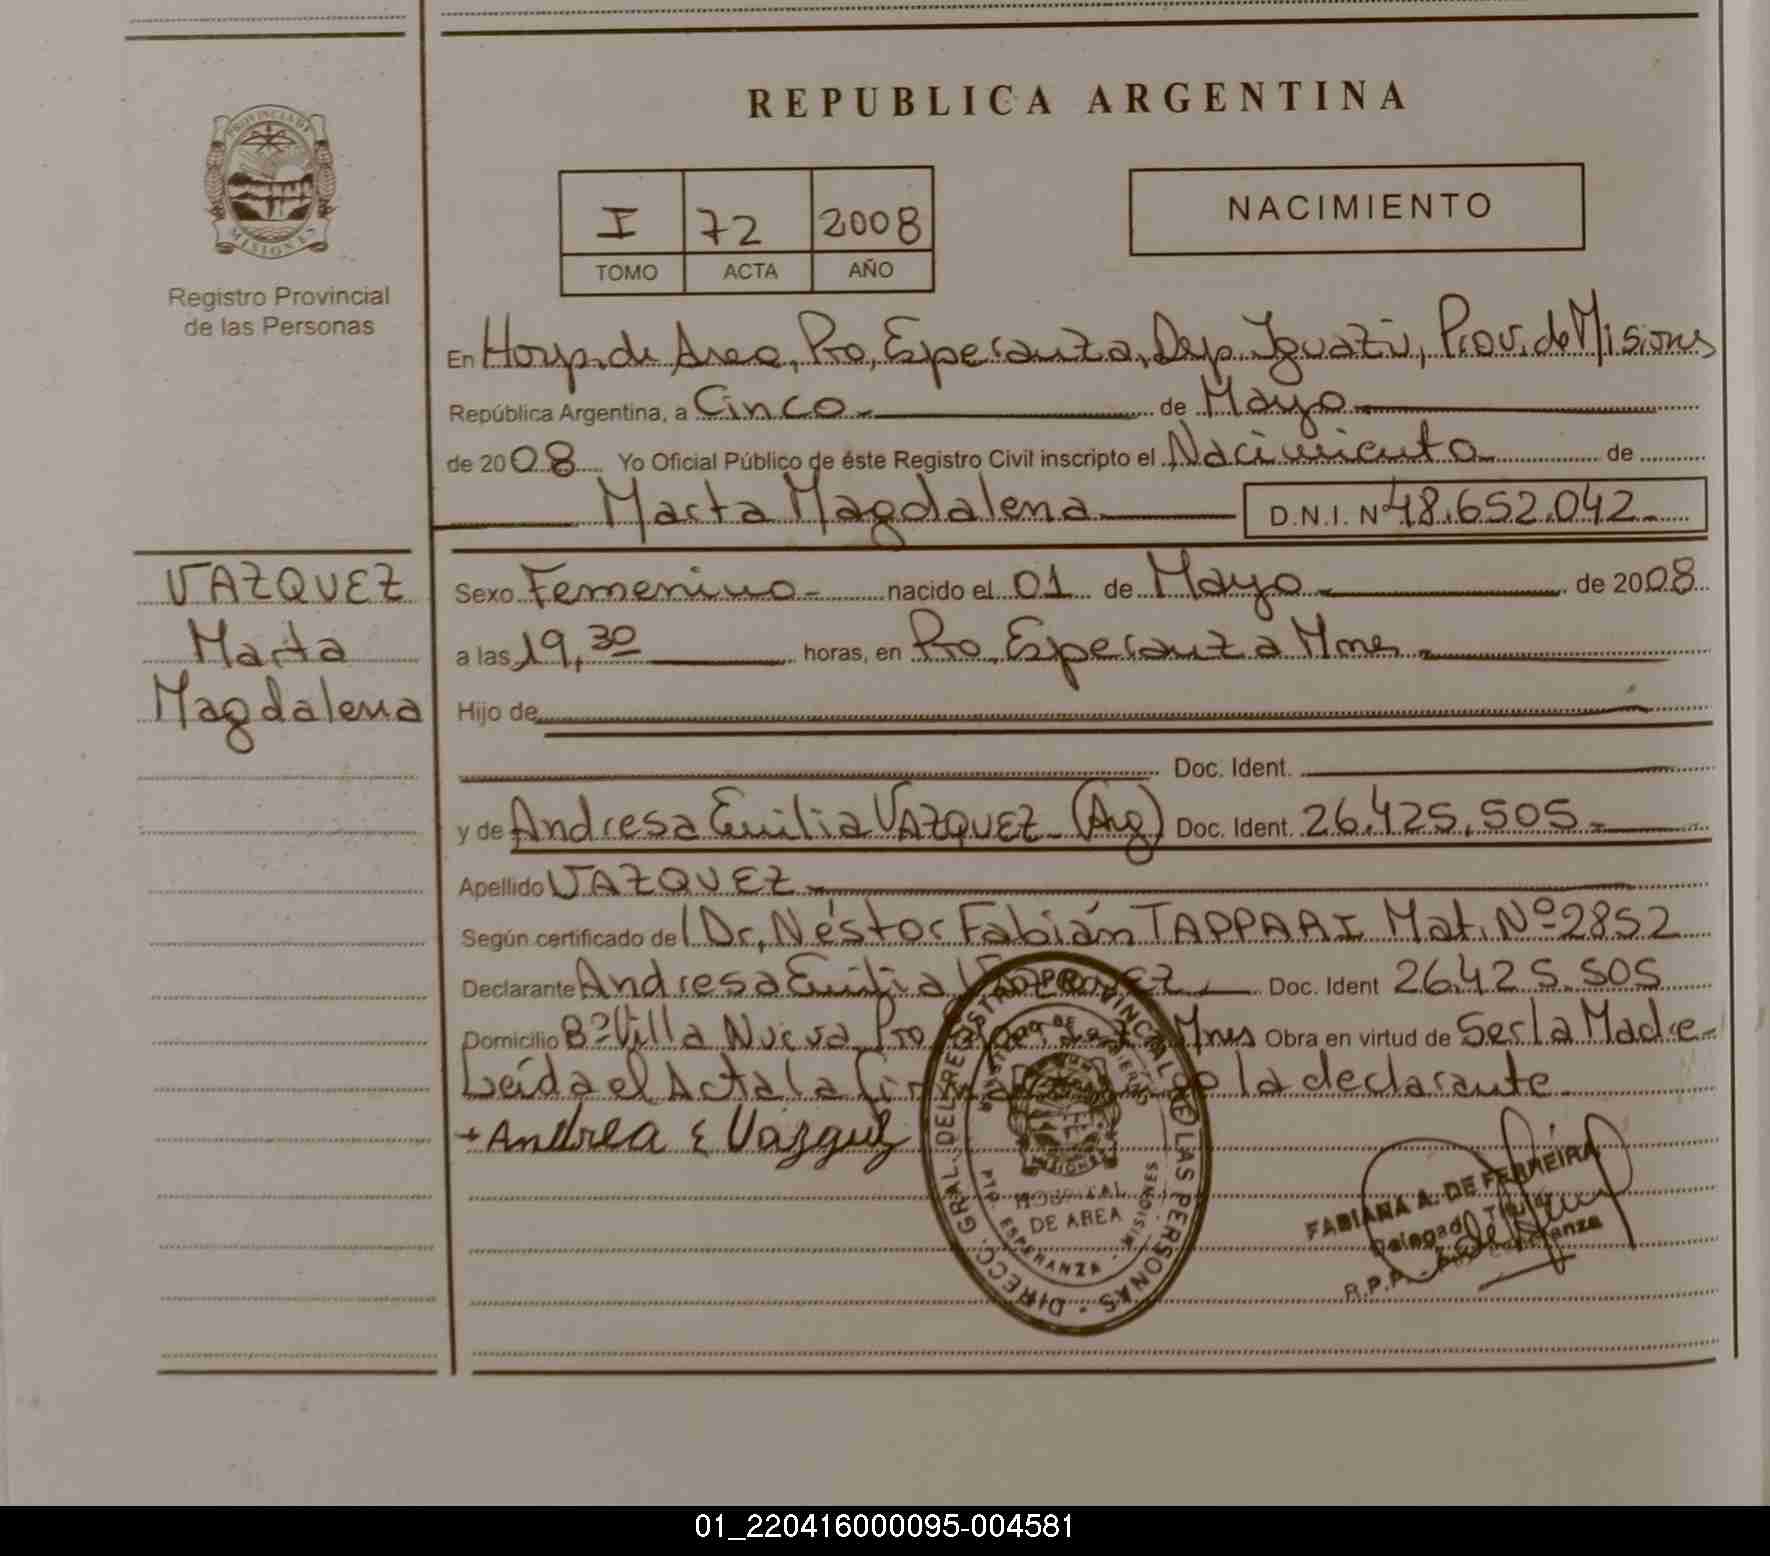 REPUBLICA ARGENTINA
PROVINCIA DE
MISIONES
Registro Provincial
de las Personas
I 72 2008
TOMO ACTA AÑO
NACIMIENTO
En Hosp. de Area, Pto, Esperanza, Dep. Iguazú, Prov. de Misiones
República Argentina, a Cinco de Mayo
de 2008 Yo Oficial Público de éste Registro Civil inscripto el Nacimiento de
Marta Magdalena D.N.I. Nº 48.652.042
VAZQUEZ
Marta
Magdalena
Sexo Femenino nacido el 01 de Mayo de 2008
a las 19,30 horas, en Pto. Esperanza Mnes
Hijo de
Doc. Ident.
y de Andresa Emilia VAZQUEZ (Arg) Doc. Ident. 26.425.505
Apellido VAZQUEZ
Según certificado del Dr. Néstor Fabián Mat. Nº 2852
Declarante Andresa Emilia Doc. Ident 26.425.505
Domicilio Bº Villa Nueva Pto Mnes Obra en virtud de Ser la Madre
Leída el Acta la la declarante
+ Andrea E Vazquez
DIRECC. GRAL. DEL REGISTRO PROVINCIAL DE LAS PERSONAS
MINISTERIO DE GOBIERNO
MISIONES
HOSPITAL
DE AREA
PTO. ESPERANZA - MISIONES
FABIANA A. DE FERREIRA
Delegada Titular
R.P.P.
01_220416000095-004581